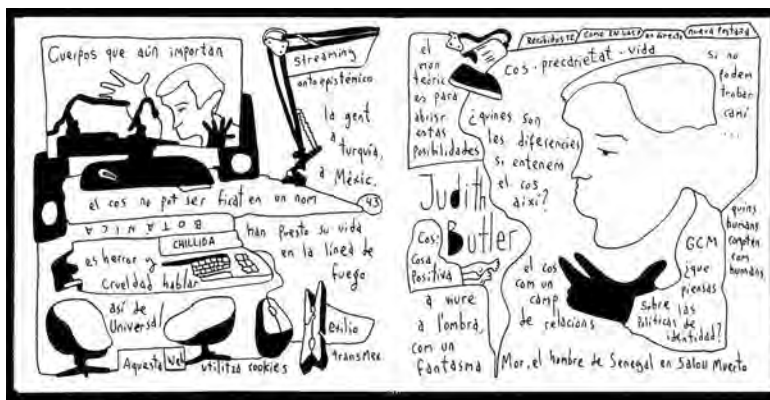 Cuerpos que aún importan
streaming
ontoepistémico
la gent
a
turquia,
a
Mèxic.
el cos no pot ser ficat en un nom
43
BOTANICA
CHILLIDA
es horror y
crueldad hablar
así de
Universal
han puesto su vida
en la línea de
fuego
exilio
transMex.
Aquesta web utilitza cookies
Recibidos 12
como en casa
en directe
nueva Pestaña
el
mon
teòric
es para
abrir
estas
posibilidades
cos - precarietat - vida
¿quines son
les diferencies
si entenem
el cos
així?
si no
podem
trobar
camí
....
Judith
Butler
Cos:
cosa
Positiva
a mure
a l'ombra,
com un
fantasma
el cos
com un
camp
de relacions
quins
humans
compten
com
humans
GCM
¿que
piensas
sobre las
Políticas de
identidad?
Mor, el hombre de Senegal en Salou Muerto